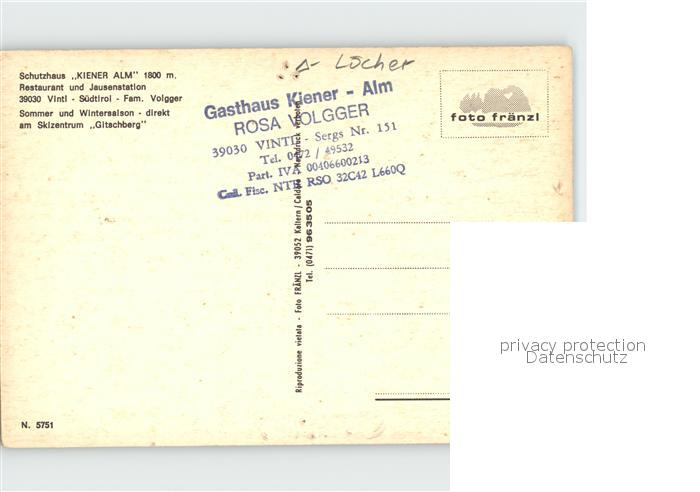 Schutzhaus „KIENER ALM" 1800 m.
Restaurant und Jausenstation
39030 Vintl - Südtirol - Fam. Volgger
Sommer und Wintersaison - direkt
am Skizentrum „Gitschberg"
Δ- Löcher
Gasthaus Kiener - Alm
ROSA VOLGGER
39030 VINTL - Sergs Nr. 151
Tel. 0472 / 49532
Part. IVA 00406600213
Cod. Fisc. RSO 32C42 L660Q
foto fränzl
Riproduzione vietata - Foto FRÄNZL - 39052 Kaltern / Caldaro - Nachdruck verboten
Tel. (0471) 963505
privacy protection
Datenschutz
N. 5751